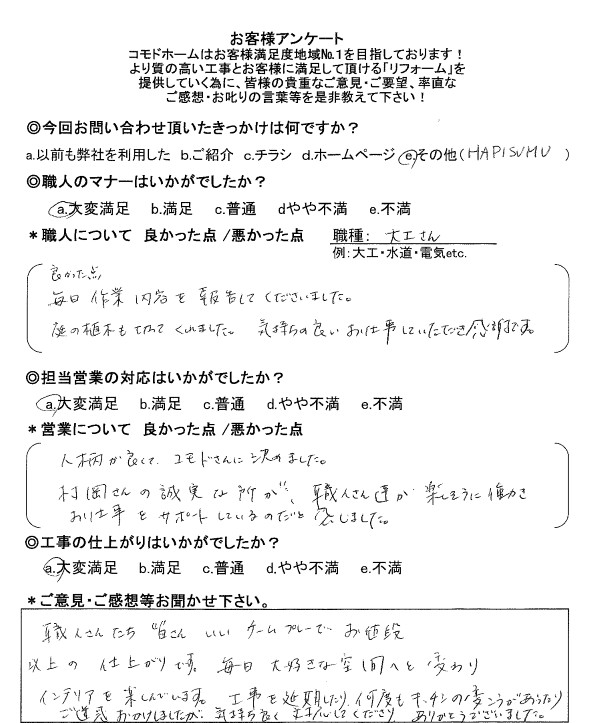 お客様アンケート
コモドホームはお客様満足度地域№1を目指しております！
より質の高い工事とお客様に満足して頂ける「リフォーム」を
提供していく為に、皆様の貴重なご意見・ご要望、率直な
ご感想・お叱りの言葉等を是非教えて下さい！
◎今回お問い合わせ頂いたきっかけは何ですか？
a.以前も弊社を利用した b.ご紹介 c.チラシ d.ホームページ e.その他（HAPISUMU ）
◎職人のマナーはいかがでしたか？
a.大変満足 b.満足 c.普通 dやや不満 e.不満
＊職人について 良かった点 /悪かった点 職種： 大工さん
例：大工・水道・電気etc.
良かった点
毎日 作業 内容を 報告してくださいました。
庭の植木も切ってくれました。 気持ちの良い お仕事していただき感謝です。
◎担当営業の対応はいかがでしたか？
a.大変満足 b.満足 c.普通 d.やや不満 e.不満
＊営業について 良かった点 /悪かった点
人柄が良くて、コモドさんに決めました。
村岡さんの誠実な所が、職人さん達が 楽しそうに働き
お仕事を サポートしているのだと 感じました。
◎工事の仕上がりはいかがでしたか？
a.大変満足 b.満足 c.普通 d.やや不満 e.不満
＊ご意見・ご感想等お聞かせ下さい。
職人さんたち 皆さん いい チームプレーで お値段
以上の 仕上がりです。 毎日 大好きな空間へと 変わり
インテリアを楽しんでいます。 工事を延期したり、何度もキッチンの変こうがあったり
ご迷惑おかけしましたが、気持ち良く 対応してくださり ありがとうございました。